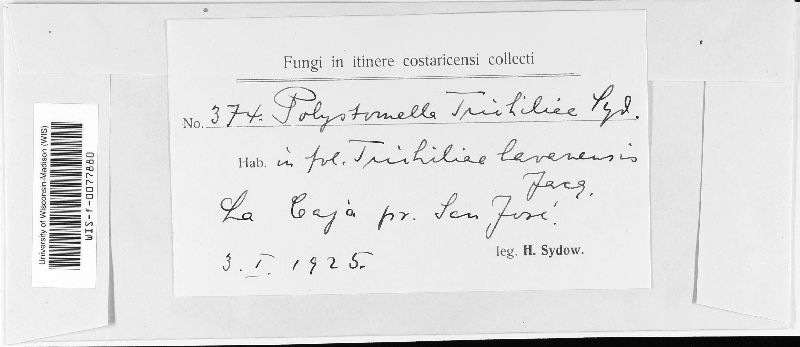 Fungi in itinere costaricensi collecti
No. 374. Polystomella Trichiliae Syd.
Hab. in fol. Trichiliae havanensis
Jacq.
La Caja pr. San José.
3. I. 1925.
leg. H. Sydow.
University of Wisconsin-Madison (WIS)
WIS-f-0077880